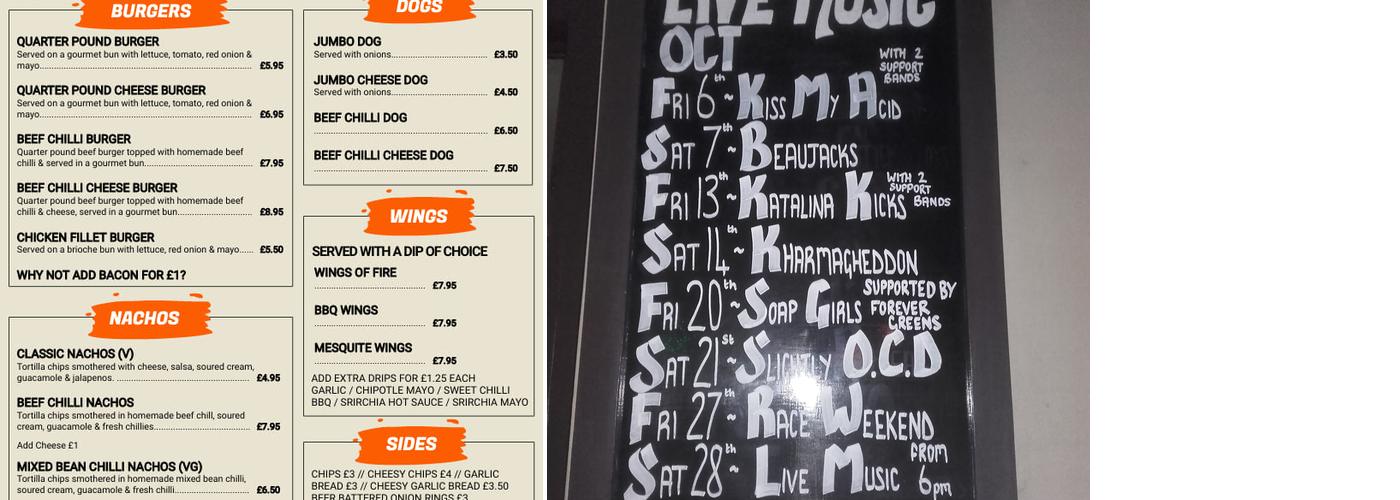 BURGERS
QUARTER POUND BURGER
Served on a gourmet bun with lettuce, tomato, red onion &
mayo................................................................ £5.95
QUARTER POUND CHEESE BURGER
Served on a gourmet bun with lettuce, tomato, red onion &
mayo................................................................ £6.95
BEEF CHILLI BURGER
Quarter pound beef burger topped with homemade beef
chilli & served in a gourmet bun................................ £7.95
BEEF CHILLI CHEESE BURGER
Quarter pound beef burger topped with homemade beef
chilli & cheese, served in a gourmet bun...................... £8.95
CHICKEN FILLET BURGER
Served on a brioche bun with lettuce, red onion & mayo...... £5.50
WHY NOT ADD BACON FOR £1?
NACHOS
CLASSIC NACHOS (V)
Tortilla chips smothered with cheese, salsa, soured cream,
guacamole & jalapenos. ........................................ £4.95
BEEF CHILLI NACHOS
Tortilla chips smothered in homemade beef chill, soured
cream, guacamole & fresh chillies............................. £7.95
Add Cheese £1
MIXED BEAN CHILLI NACHOS (VG)
Tortilla chips smothered in homemade mixed bean chilli,
soured cream, guacamole & fresh chilli....................... £6.50
DOGS
JUMBO DOG
Served with onions............................... £3.50
JUMBO CHEESE DOG
Served with onions............................... £4.50
BEEF CHILLI DOG
........................................................ £6.50
BEEF CHILLI CHEESE DOG
........................................................ £7.50
WINGS
SERVED WITH A DIP OF CHOICE
WINGS OF FIRE
.................................... £7.95
BBQ WINGS
.................................... £7.95
MESQUITE WINGS
.................................... £7.95
ADD EXTRA DRIPS FOR £1.25 EACH
GARLIC / CHIPOTLE MAYO / SWEET CHILLI
BBQ / SRIRCHIA HOT SAUCE / SRIRCHIA MAYO
SIDES
CHIPS £3 // CHEESY CHIPS £4 // GARLIC
BREAD £3 // CHEESY GARLIC BREAD £3.50
BEER BATTERED ONION RINGS £3
LIVE MUSIC
OCT
FRI 6th ~ KISS MY ACID WITH 2 SUPPORT BANDS
SAT 7th ~ BEAUJACKS
FRI 13th ~ KATALINA KICKS WITH 2 SUPPORT BANDS
SAT 14th ~ KHARMAGHEDDON
FRI 20th ~ SOAP GIRLS SUPPORTED BY FOREVER GREENS
SAT 21st ~ SLIGHTLY O.C.D
FRI 27th ~ RACE WEEKEND
SAT 28th ~ LIVE MUSIC FROM 6pm